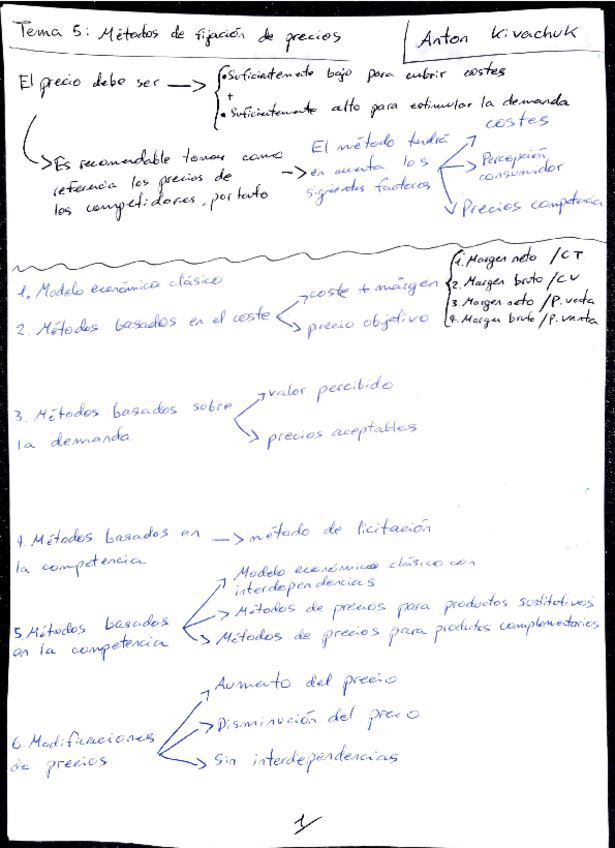 Tema 5: Métodos de fijación de precios
Anton Kivachuk
El precio debe ser
• Suficientemente bajo para cubrir costes
+
• Suficientemente alto para estimular la demanda
Es recomendable tomar como
referencia los precios de
los competidores, por tanto
El método tendrá
en cuenta los
siguientes factores
costes
Percepción
consumidor
Precios competencia
1. Modelo económico clásico
2. Métodos basados en el coste
coste + márgen
precio objetivo
1. Margen neto / CT
2. Margen bruto / CV
3. Margen neto / P. venta
4. Margen bruto / P. venta
3. Métodos basados sobre
la demanda
valor percibido
precios aceptables
4. Métodos basados en
la competencia
método de licitación
5 Métodos basados
en la competencia
Modelo económico clásico con
interdependencias
Métodos de precios para productos sustitutivos
Métodos de precios para productos complementarios
6. Modificaciones
de precios
Aumento del precio
Disminución del precio
Sin interdependencias
1